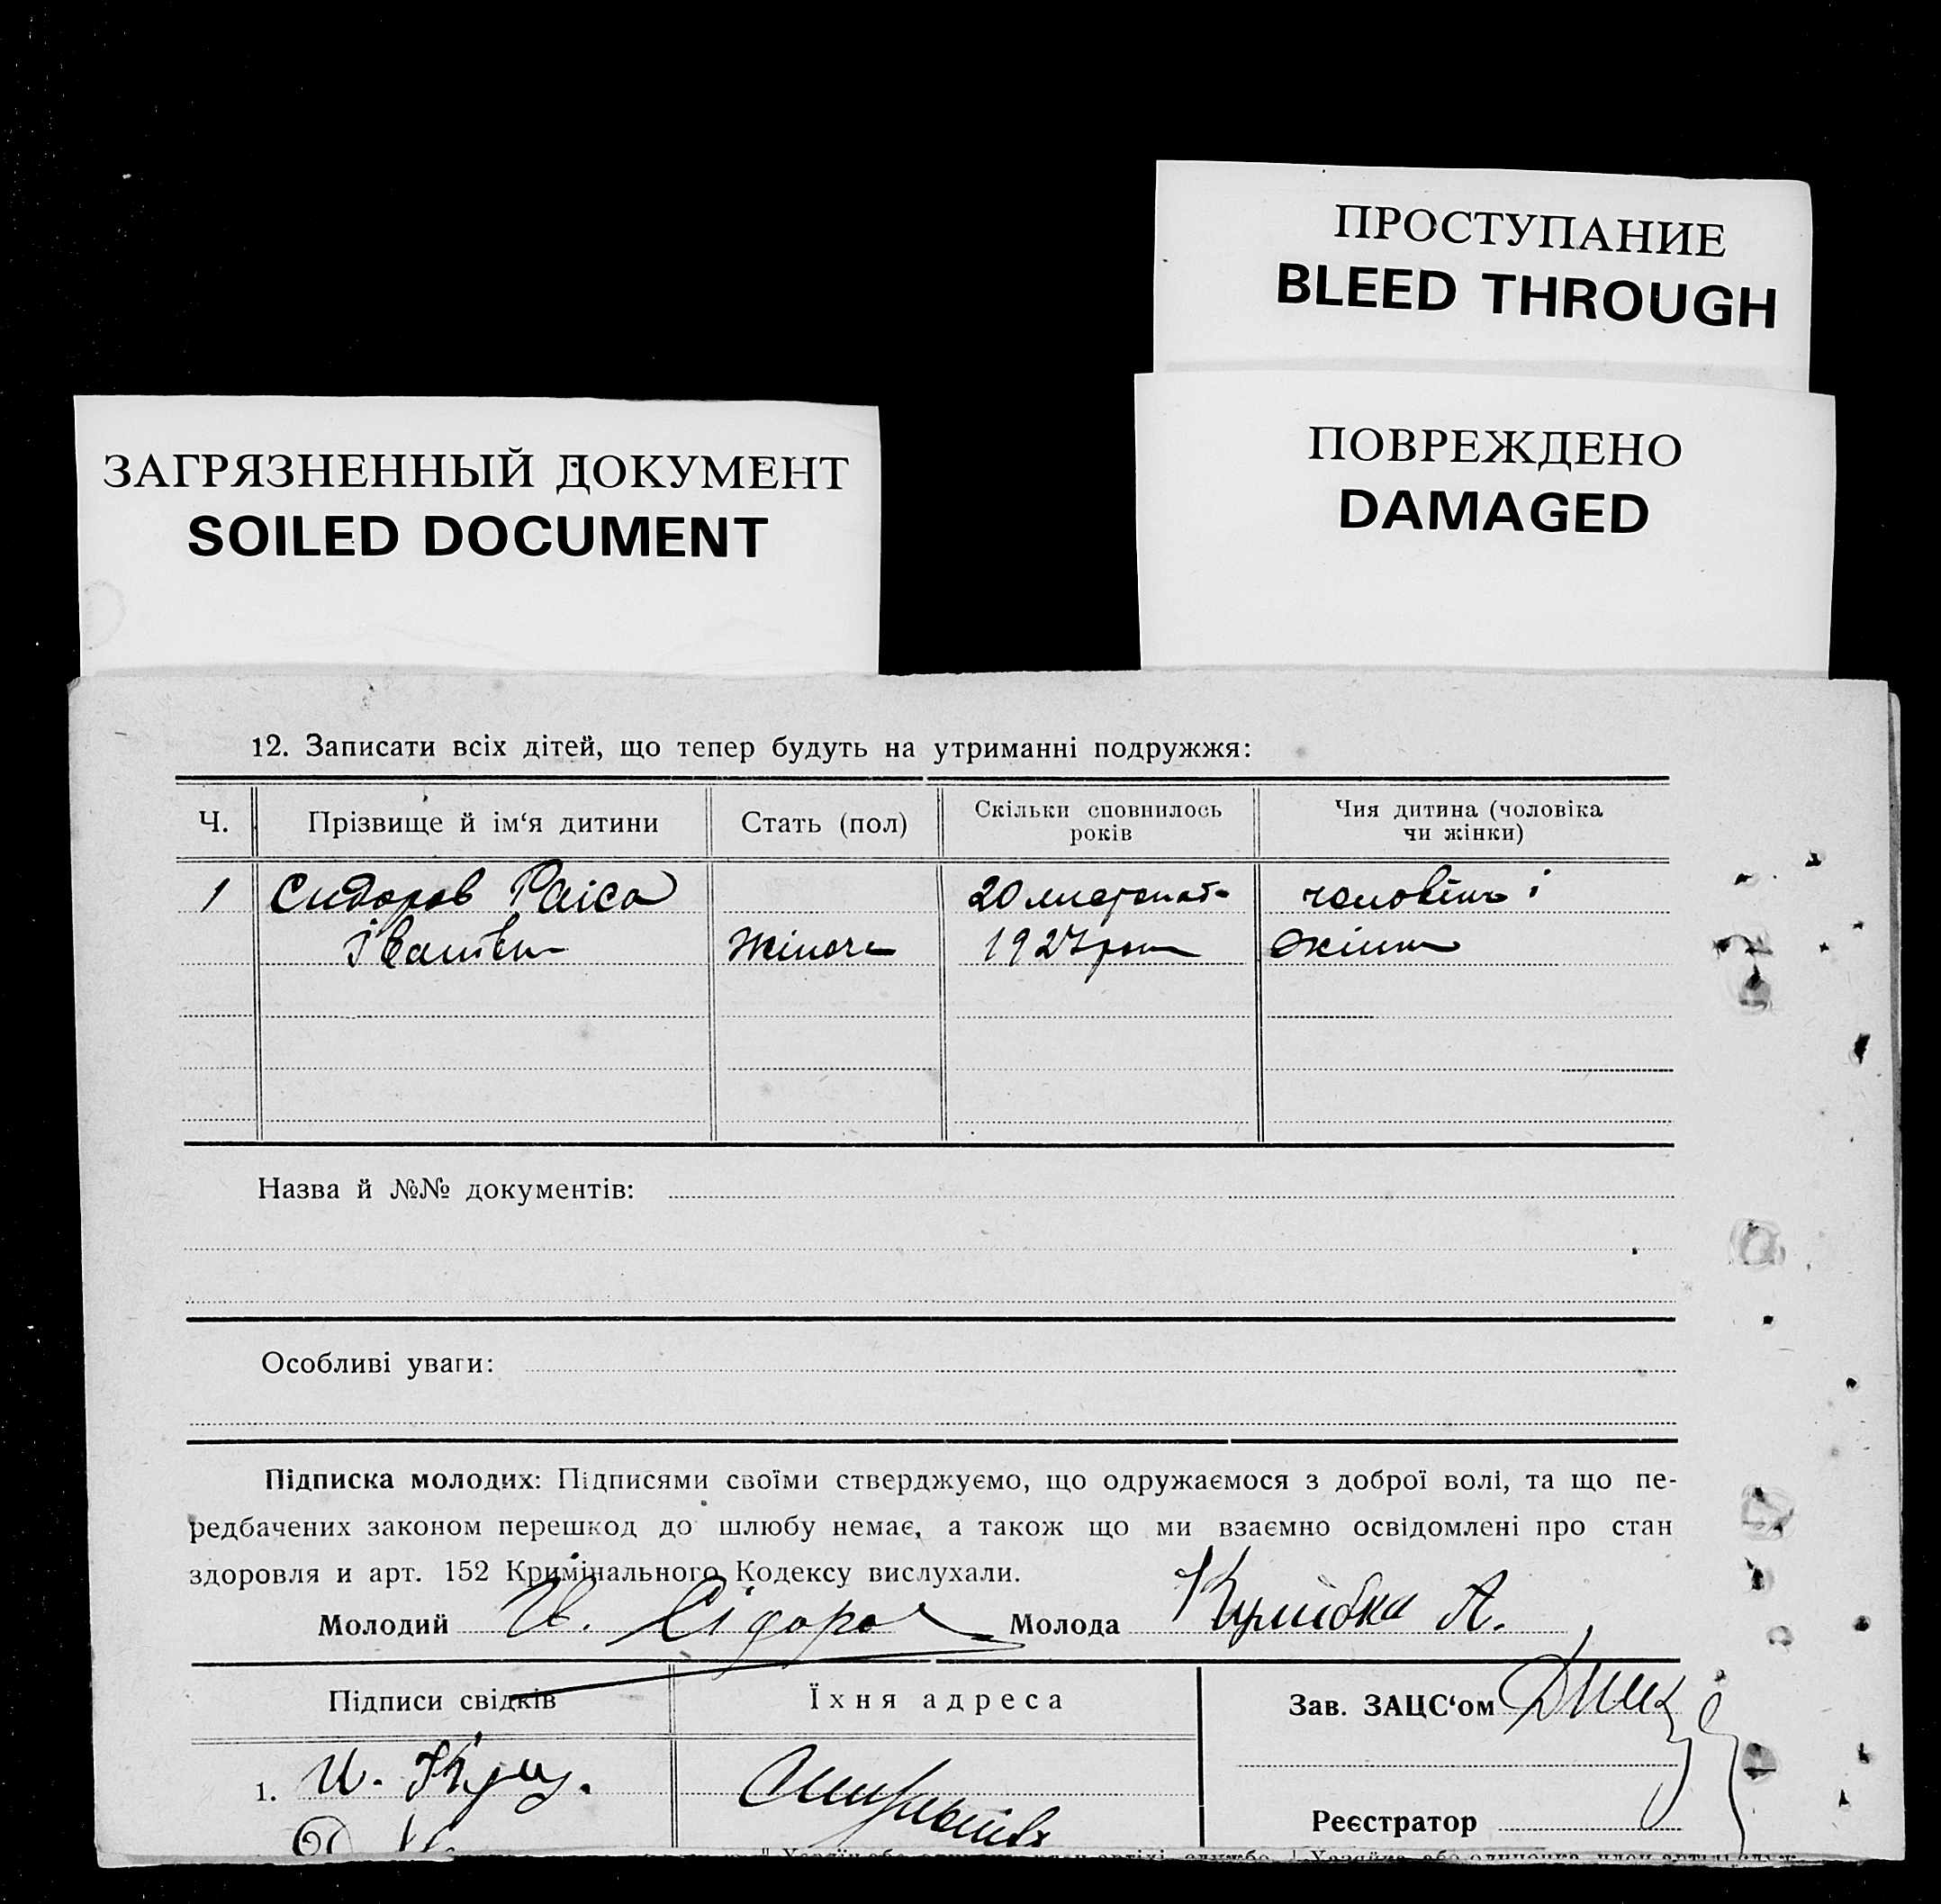 ПРОСТУПАНИЕ
BLEED THROUGH
ПОВРЕЖДЕНО
DAMAGED
ЗАГРЯЗНЕННЫЙ ДОКУМЕНТ
SOILED DOCUMENT
12. Записати всіх дітей, що тепер будуть на утриманні подружжя:
Ч. Прізвище й ім‘я дитини Стать (пол) Скільки сповнилось років Чия дитина (чоловіка чи жінки)
1 Сидоров Раіса 20 листопад. чоловіка і
Іванівна Жіноча 1927 року жінки
Назва й №№ документів:
Особливі уваги:
Підписка молодих: Підписями своїми стверджуємо, що одружаємося з доброї волі, та що пе-
редбачених законом перешкод до шлюбу немає, а також що ми взаємно освідомлені про стан
здоровля и арт. 152 Кримінального Кодексу вислухали.
Молодий И. Сідоро Молода А.
Підписи свідків Їхня адреса Зав. ЗАЦС‘ом
1. И.
Реєстратор